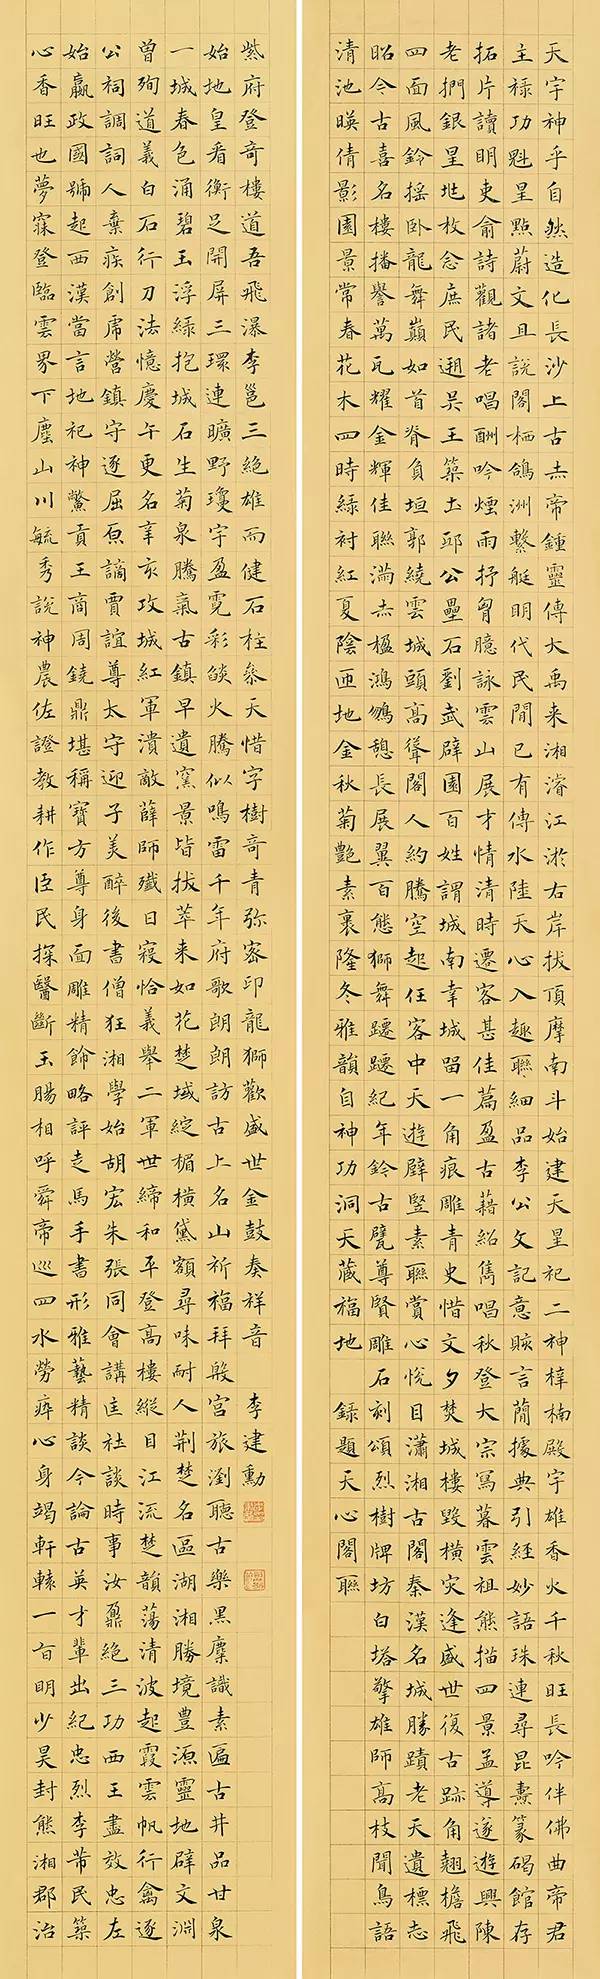 天宇神乎自然造化長沙上古赤帝鍾靈傳大禹来湘濬江淤右岸拔頂摩南斗始建天星祀二神梓楠殿宇雄香火千秋旺長吟伴佛曲帝君
主祿功魁星點蔚文且說閣栖鴿洲繫艇明代民間已有傳水陸天心入趣聯細品李公文記意賅言簡據典引経妙語珠連尋昆燾篆碣館存
拓片讀明吏俞詩觀諸老唱酬吟煙雨抒胷臆詠雲山展才情清時遷客甚佳篇盈古藉紹雋唱秋登大宗寫暮雲祖熊描四景孟導遂遊興陳
老捫銀星地枚念庶民遡吴王築土邱公壘石劉武辟園百姓謂城南幸城留一角痕雕青史惜文夕焚城樓毀橫灾逢盛世復古跡角翹檐飛
四面風鈴搖卧龍舞巔如首脊負垣郭繞雲城頭高聳閣人約騰空起任客中天遊壁豎素聯賞心悅目瀟湘古閣秦漢名城勝蹟老天遺標志
昭今古喜名樓播譽萬瓦耀金輝佳聯满赤楹鴻鵠憩長展翼百態獅舞躚躚紀年鈴古甓尊賢雕石刻頌烈樹牌坊白塔擎雄師高枝聞鳥語
清池暎倩影園景常春花木四時緑衬紅夏陰匝地金秋菊艷素裹隆冬雅韻自神功洞天藏福地 錄題天心閣聯
心香旺也夢寐登臨雲界下塵山川毓秀說神農佐證教耕作臣民探醫斷玉腸相呼舜帝巡四水勞瘁心身竭軒轅一旨明少昊封熊湘郡治
始嬴政國號起西漢當言地祀神鱉貢王商周鐃鼎堪稱寶方尊身面雕精飾略評走馬手書形雅藝精談今論古英才輩出紀忠烈李芾民築
公祠調詞人棄疾創虎營鎮守逐屈原謫賈誼尊太守迎子美醉後書僧狂湘學始胡宏朱張同會講匡社談時事汝鼐絕三功西王盡效忠左
曽殉道義白石行刀法憶慶午更名辛亥攻城紅軍潰敵薛師殲日寝恰義舉二軍世締和平登高樓縱目江流楚韻蕩清波起霞雲帆行禽逐
一城春色涌碧玉浮綠抱城石生菊泉騰氣古鎮早遺窯景皆拔萃来如花楚域綻楣橫黛額尋味耐人荆楚名區湖湘勝境豊源靈地辟文淵
始地皇看衡足開屏三環連曠野瓊宇盈霓彩燄火騰似鳴雷千年府歌朗朗訪古上名山祈福拜殿宮旅瀏聽古樂黑麋識素匾古井品甘泉
紫府登奇樓道吾飛瀑李邕三絕雄而健石柱叅天惜字樹奇青弥密印龍獅歡盛世金鼓奏祥音 李建勳